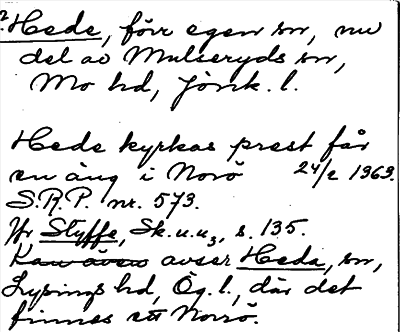 ?Hede, förr egen sn, nu
del av Mulseryds sn,
Mo hd, Jönk. l.
Hede kyrkas prest får
en äng i Norö 24/2 1363.
S.R.P. nr. 573.
Jfr Styffe, Sk.u.u3, s. 135.
Kan även avser Heda, sn,
Lysings hd, Ög. l., där det
finnes ett Norrö.